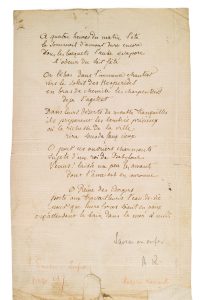 A quatre heures du matin, l'été
le sommeil d'amour dure encore
sous les bosquets l'aube évapore
l'odeur du soir fêté
Or là-bas dans l'immense chantier
vers le soleil des Hespérides
en bras de chemise les charpentiers
déjà s'agitent
Dans leurs déserts de mousse tranquilles
ils préparent les lambris précieux
où la richesse de la ville
rira sous de faux cieux
O pour ces ouvriers charmants
Sujets d'un roi de Babylone
Vénus! laisse un peu les amants
dont l'âme est en couronne
O Reine des Bergers
porte aux travailleurs l'eau de vie
pour que leurs forces soient en paix
en attendant le bain dans la mer à midi